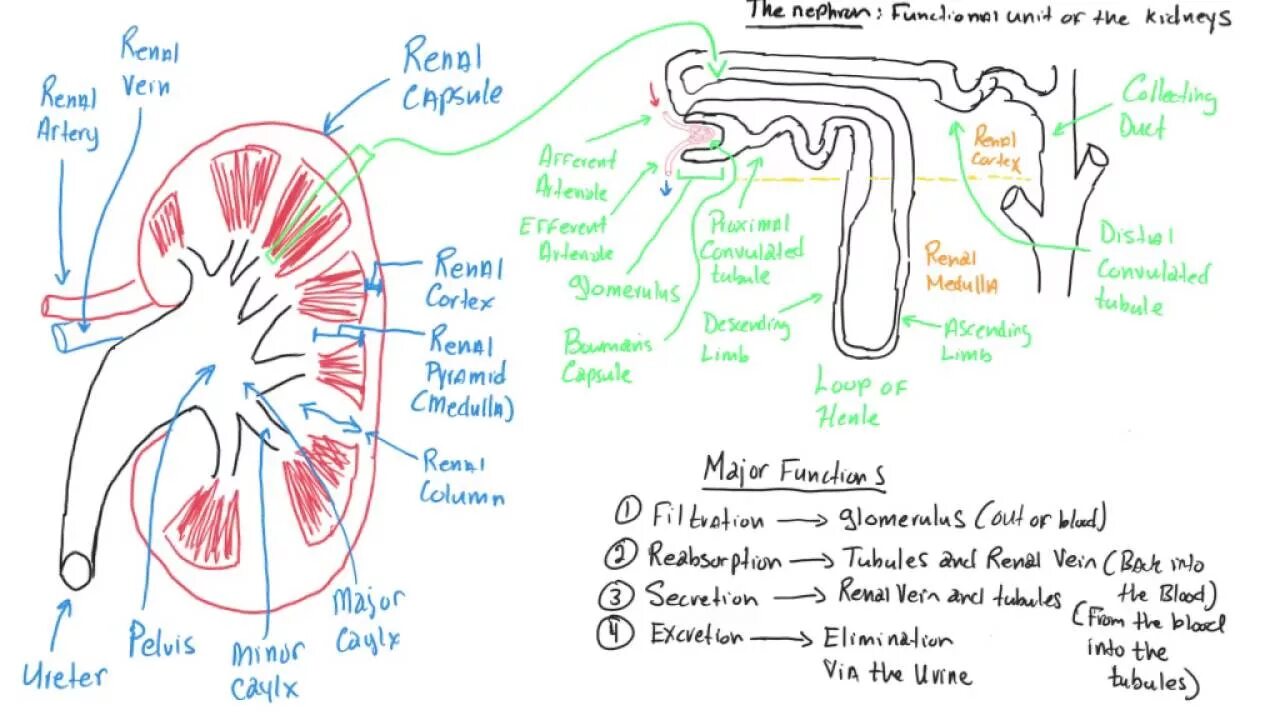 The nephron: Functional unit of the kidneys
Renal
Vein
Renal
Artery
Renal
Capsule
Renal
Cortex
Renal
Pyramid
(Medulla)
Renal
Column
Major
Caylx
Minor
Caylx
Pelvis
Ureter
Afferent
Arteriole
Efferent
Arteriole
glomerulus
Bowman's
Capsule
Proximal
Convulated
tubule
Descending
Limb
Loup of
Henle
Ascending
Limb
Renal
Cortex
Renal
Medulla
Collecting
Duct
Distial
Convulated
tubule
Major Functions
① Filtration → glomerulus (out of blood)
② Reabsorption → Tubules and Renal Vein (Back into
the Blood)
③ Secretion → Renal Vein and tubules
(From the blood
into the
tubules)
④ Excretion → Elimination
Via the Urine